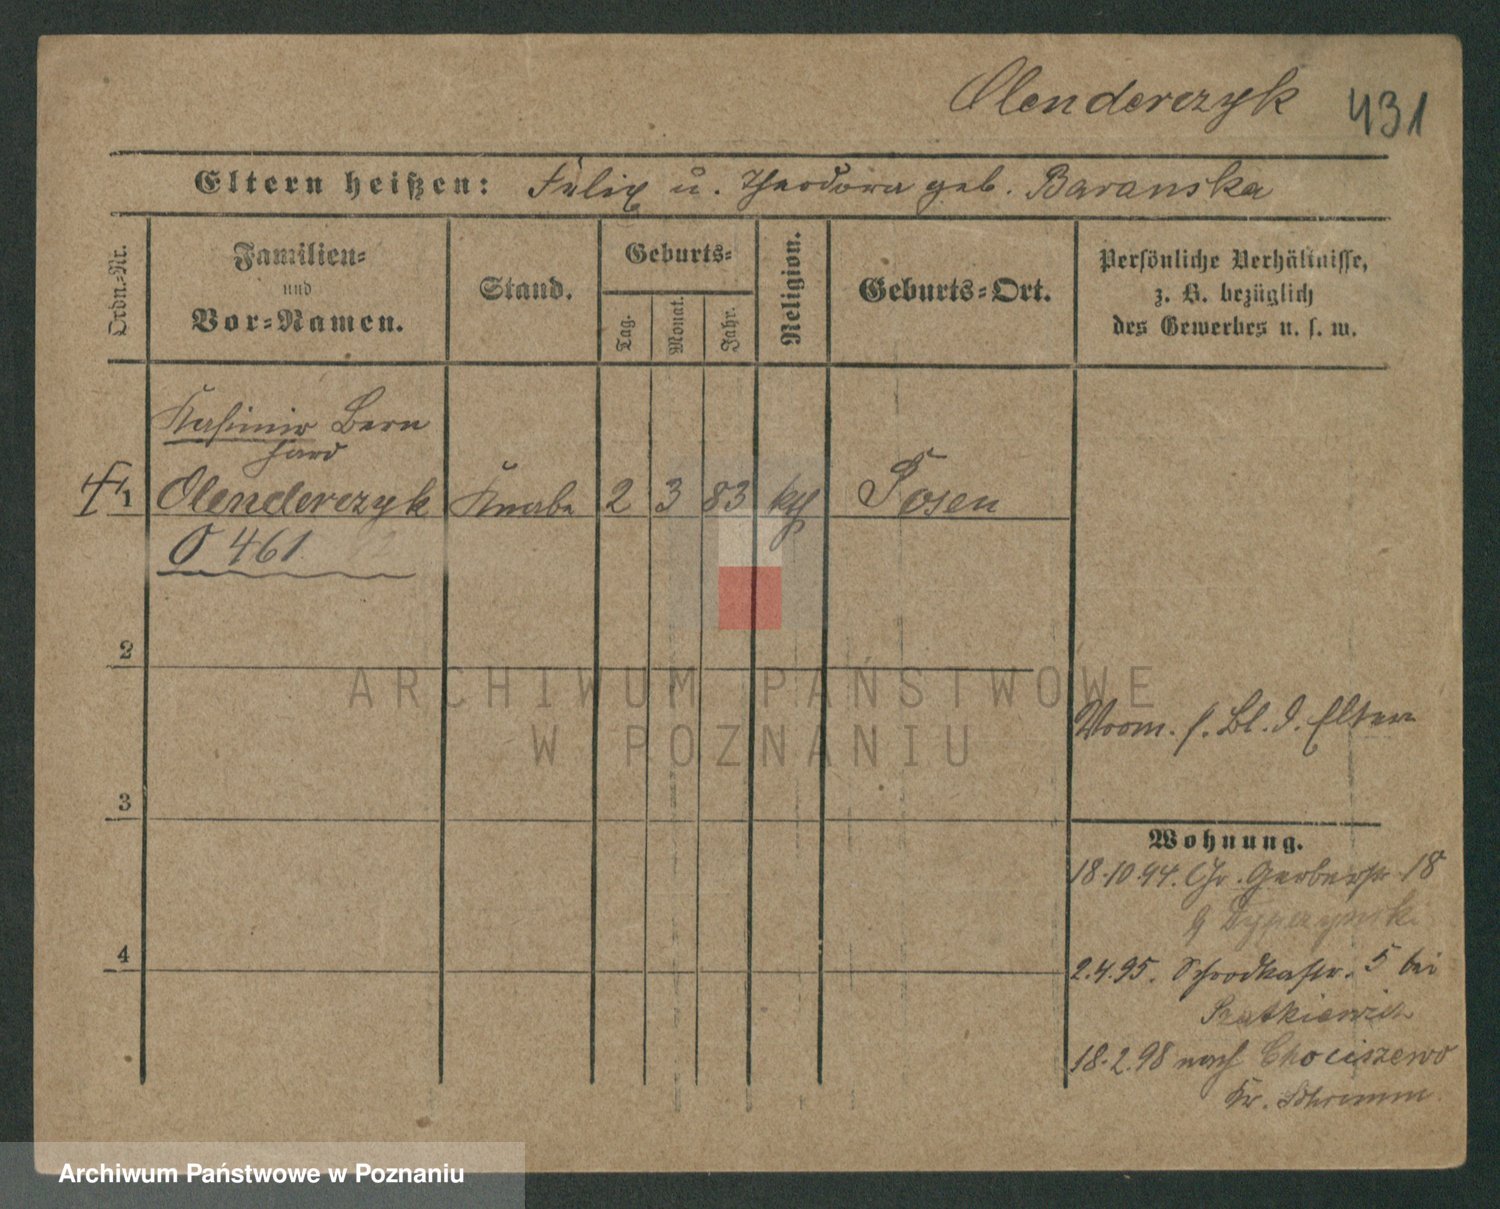 Olenderczyk 431
Eltern heißen: Felix u. Theodora geb. Baranska
Ordn.-Nr.
Familien-
und
Vor-Namen.
Stand.
Geburts-
Tag.
Monat.
Jahr.
Religion.
Geburts-Ort.
Persönliche Verhältnisse,
z. B. bezüglich
des Gewerbes u. s. w.
Kasimir Bern
hard
1 Olenderczyk Knabe 2 3 83 kth Posen
O 461
2
ARCHIWUM PAŃSTWOWE
W POZNANIU
Vorm. s. Bl. d. Eltern
3
Wohnung.
18.10.94. Gr. Gerberstr 18
4
2.4.95. Schrodkastr. 5 bei
18.2.98 nach Chociszewo
Kr. Schrimm
Archiwum Państwowe w Poznaniu